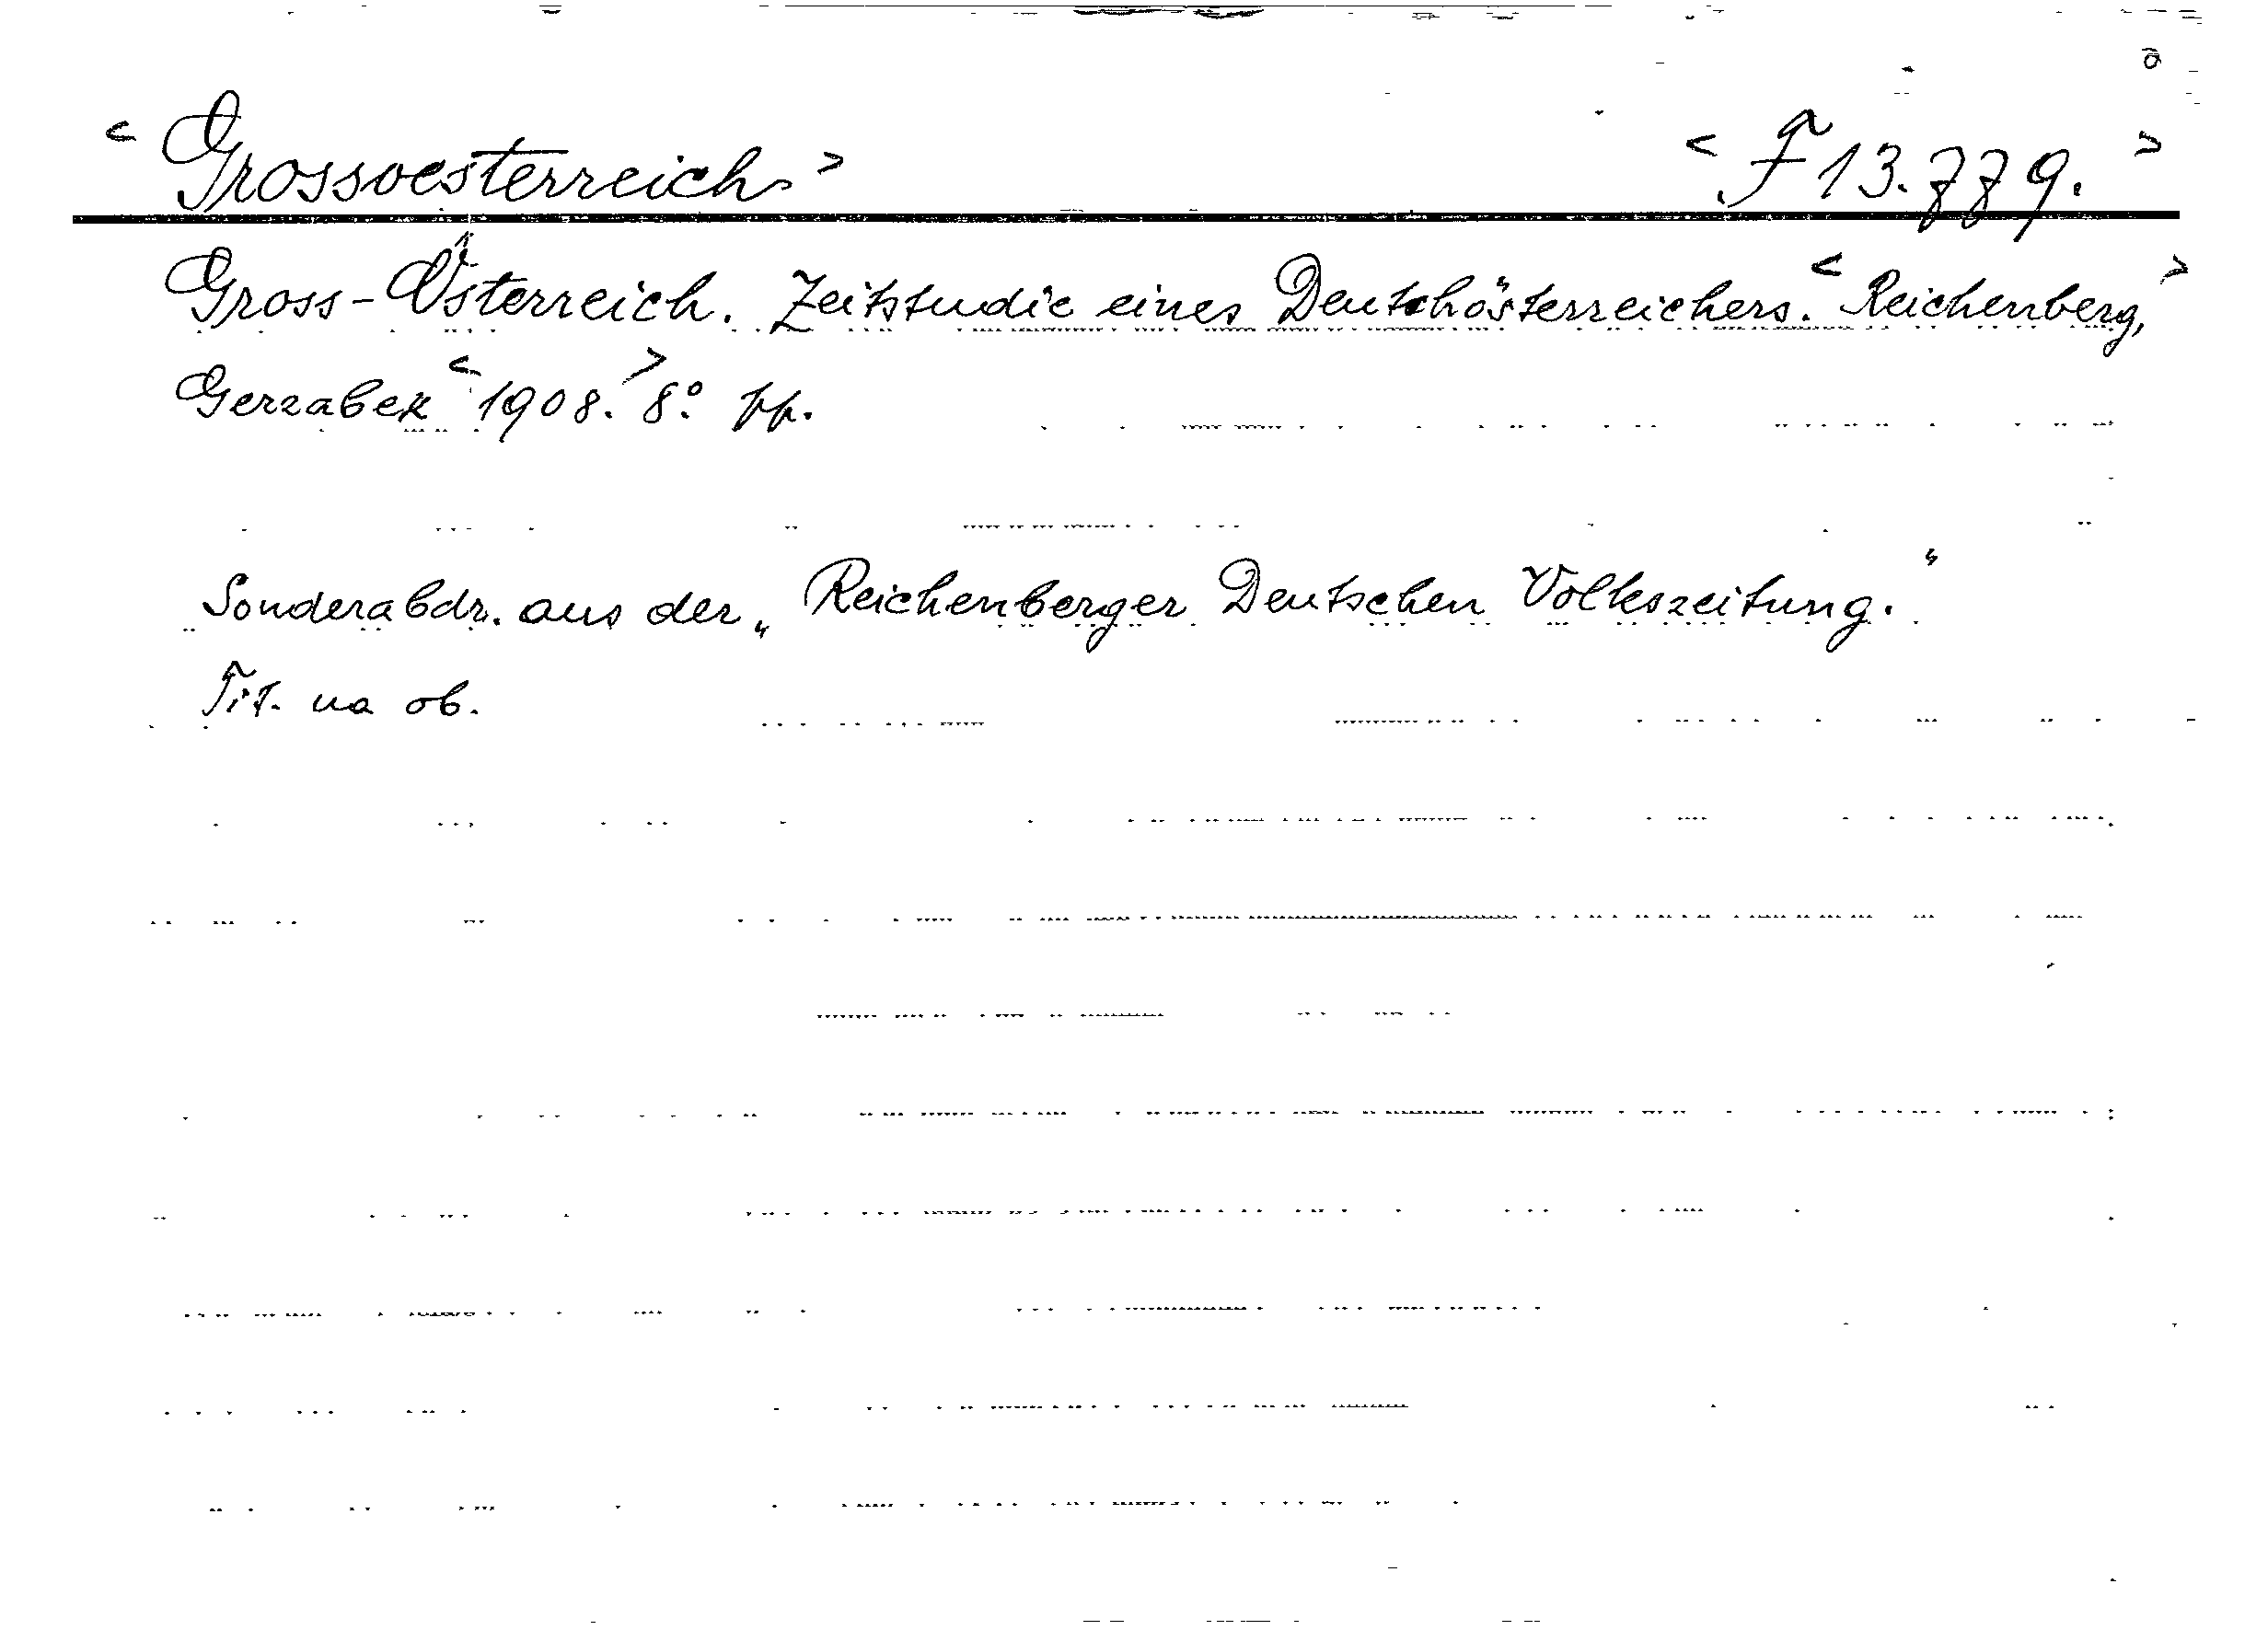 < Grossoesterreich > < F 13.779. >
Gross-Österreich. Zeitstudie eines Deutschösterreichers. < Reichenberg, >
Gerzabek < 1908. > 8º pp.
Sonderabdr. aus der „Reichenberger Deutschen Volkszeitung.“
Tit. na ob.